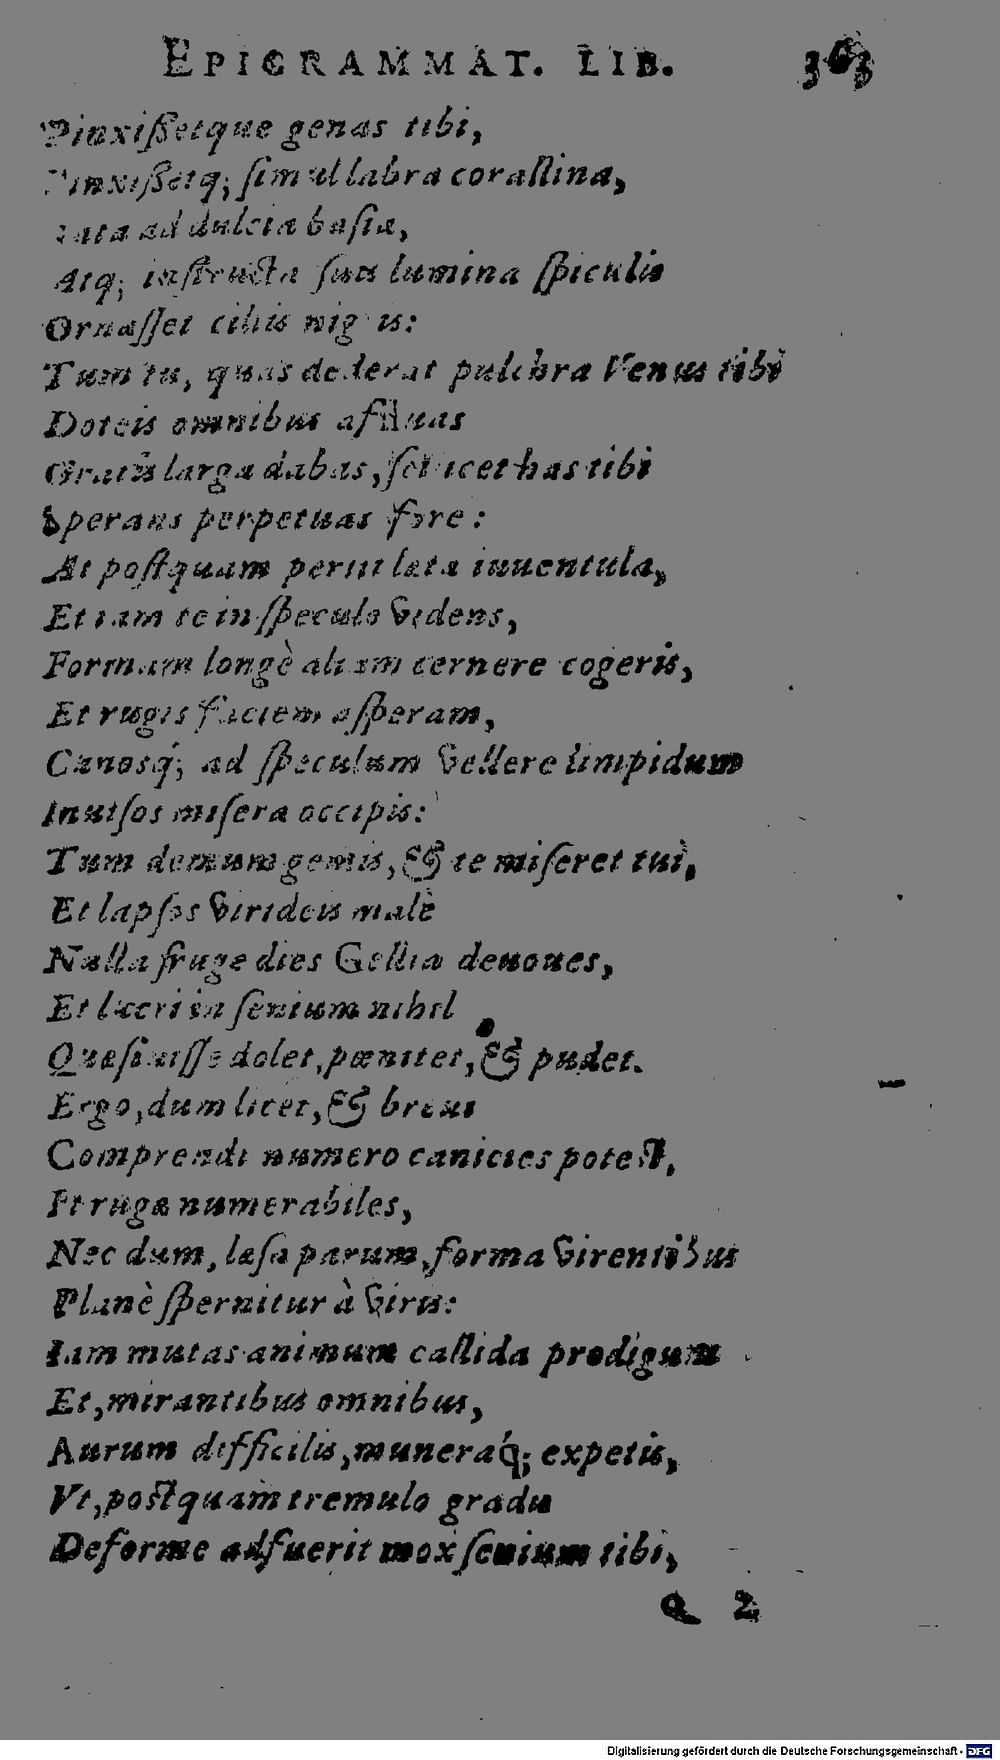 EPIGRAMMAT. LIB. 363
Pinxißetque genas tibi,
Pinxißetq; ſimul labra corallina,
ad dulcia baſia,
Atq; inſtructa ſuis lumina ſpiculis
Ornaſſet ciliis nigris:
Tum tu, quas dederat pulchra Venus tibi
Doteis omnibus affluas
Gratis larga dabas, ſcilicet has tibi
Sperans perpetuas fore:
At poſtquam periit læta iuuentula,
Et iam te in ſpeculo videns,
Formam longè aliam cernere cogeris,
Et rugis faciem aſperam,
Canosq́; ad ſpeculum vellere limpidum
Inuiſos miſera occipis:
Tum demum gemis, & te miſeret tui,
Et lapſos virideis malè
Nulla fruge dies Gellia deuoues,
Et lucri in ſenium nihil
Quæſiuiſſe dolet, pœnitet, & pudet.
Ergo, dum licet, & breui
Comprendi numero canicies poteſt,
Et rugæ numerabiles,
Nec dum, læſa parum, forma virentibus
Planè ſpernitur à viris:
Iam mutas animum callida prodigum
Et, mirantibus omnibus,
Aurum difficilis, muneraq́; expetis,
Vt, poſtquam tremulo gradu
Deforme adfuerit mox ſenium tibi,
Q 2
Digitalisierung gefördert durch die Deutsche Forschungsgemeinschaft - DFG